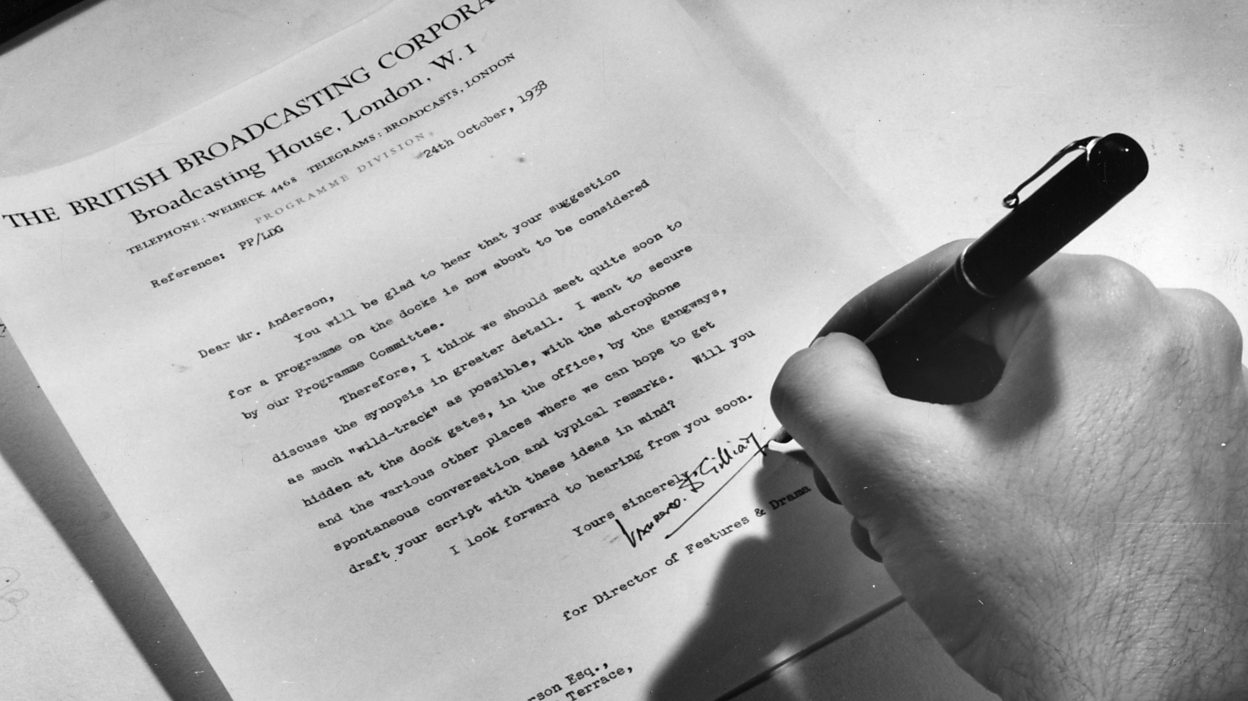 THE BRITISH BROADCASTING CORPORA
Broadcasting House, London, W. 1
TELEPHONE: WELBECK 4468 TELEGRAMS: BROADCASTS, LONDON
PROGRAMME DIVISION,
24th October, 1938
Reference: PP/LDG
Dear Mr. Anderson,
You will be glad to hear that your suggestion
for a programme on the docks is now about to be considered
by our Programme Committee.
Therefore, I think we should meet quite soon to
discuss the synopsis in greater detail. I want to secure
as much "wild-track" as possible, with the microphone
hidden at the dock gates, in the office, by the gangways,
and the various other places where we can hope to get
spontaneous conversation and typical remarks. Will you
draft your script with these ideas in mind?
I look forward to hearing from you soon.
Yours sincerely,
for Director of Features & Drama
rson Esq.,
Terrace,